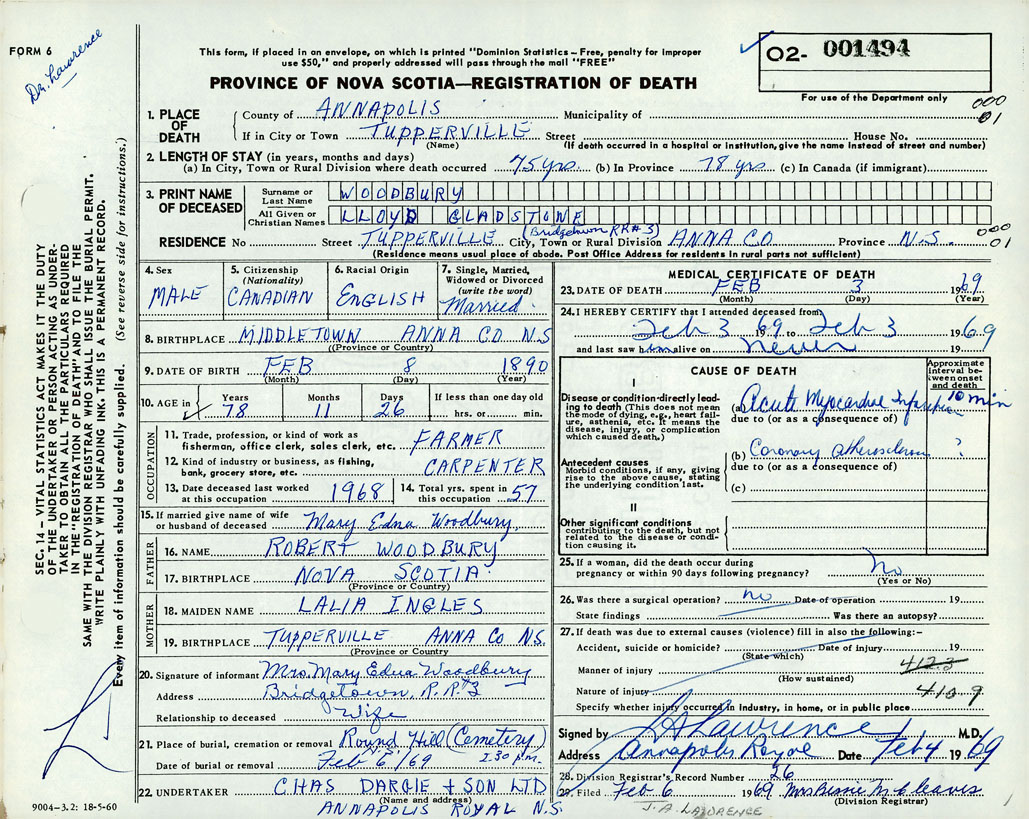 FORM 6
Dr. Lawrence
This form, if placed in an envelope, on which is printed "Dominion Statistics – Free, penalty for improper
use $50," and properly addressed will pass through the mail "FREE"
PROVINCE OF NOVA SCOTIA—REGISTRATION OF DEATH
02- 001494
For use of the Department only
000
01
1. PLACE OF DEATH
County of ANNAPOLIS Municipality of
If in City or Town TUPPERVILLE Street House No.
(Name) (If death occurred in a hospital or institution, give the name instead of street and number)
2. LENGTH OF STAY (in years, months and days)
(a) In City, Town or Rural Division where death occurred 75 yrs. (b) In Province 78 yrs (c) In Canada (if immigrant)
3. PRINT NAME OF DECEASED
Surname or Last Name WOODBURY
All Given or Christian Names LLOYD GLADSTONE
(Bridgetown RR#3)
RESIDENCE No Street TUPPERVILLE City, Town or Rural Division ANNA CO Province N.S.
000
01
(Residence means usual place of abode. Post Office Address for residents in rural parts not sufficient)
4. Sex
MALE
5. Citizenship
(Nationality)
CANADIAN
6. Racial Origin
ENGLISH
7. Single, Married,
Widowed or Divorced
(write the word)
Married
8. BIRTHPLACE MIDDLETOWN ANNA CO N S
(Province or Country)
9. DATE OF BIRTH FEB 8 1890
(Month) (Day) (Year)
10. AGE in
Years Months Days If less than one day old
78 11 26 hrs. or min.
OCCUPATION
11. Trade, profession, or kind of work as
fisherman, office clerk, sales clerk, etc. FARMER
12. Kind of industry or business, as fishing,
bank, grocery store, etc. CARPENTER
13. Date deceased last worked
at this occupation 1968
14. Total yrs. spent in
this occupation 57
15. If married give name of wife
or husband of deceased Mary Edna Woodbury.
FATHER
16. NAME ROBERT WOODBURY
17. BIRTHPLACE NOVA SCOTIA
(Province or Country)
MOTHER
18. MAIDEN NAME LALIA INGLES
19. BIRTHPLACE TUPPERVILLE ANNA CO N.S.
(Province or Country)
20. Signature of informant Mrs. Mary Edna Woodbury
Address Bridgetown, R.R#3
Relationship to deceased Wife
21. Place of burial, cremation or removal Round Hill (Cemetery)
Date of burial or removal Feb 6/69 2.30 P.M.
22. UNDERTAKER CHAS DARGIE + SON LTD
(Name and address)
ANNAPOLIS ROYAL N.S.
9004-3.2: 18-5-60
MEDICAL CERTIFICATE OF DEATH
23. DATE OF DEATH FEB 3 1969
(Month) (Day) (Year)
24. I HEREBY CERTIFY that I attended deceased from
Feb 3 1969 to Feb 3 1969
and last saw him alive on never 19
CAUSE OF DEATH
Approximate interval between onset and death
I
Disease or condition directly leading to death (This does not
mean the mode of dying, e.g., heart failure, asthenia, etc. It means the
disease, injury, or complication
which caused death.)
(a) Acute Myocardial Infarction 10 min
due to (or as a consequence of)
Antecedent causes
Morbid conditions, if any, giving
rise to the above cause, stating
the underlying condition last.
(b) Coronary Atherosclerosis ?
due to (or as a consequence of)
(c)
II
Other significant conditions
contributing to the death, but not
related to the disease or condition causing it.
25. If a woman, did the death occur during
pregnancy or within 90 days following pregnancy? No
(Yes or No)
26. Was there a surgical operation? no Date of operation 19
State findings Was there an autopsy?
27. If death was due to external causes (violence) fill in also the following:–
Accident, suicide or homicide? Date of injury 19
(State which)
Manner of injury 412.3
(How sustained)
Nature of injury 410.9
Specify whether injury occurred in industry, in home, or in public place
Signed by J A Lawrence M.D.
Address Annapolis Royal Date Feb 4 1969
28. Division Registrar's Record Number 26
29. Filed Feb 6 1969 Mrs Bessie McCleaves
(Division Registrar)
J. A. LAWRENCE
SEC. 14 – VITAL STATISTICS ACT MAKES IT THE DUTY
OF THE UNDERTAKER OR PERSON ACTING AS UNDERTAKER TO OBTAIN ALL THE PARTICULARS REQUIRED
IN THE "REGISTRATION OF DEATH" AND TO FILE THE
SAME WITH THE DIVISION REGISTRAR WHO SHALL ISSUE THE BURIAL PERMIT.
WRITE PLAINLY WITH UNFADING INK. THIS IS A PERMANENT RECORD.
Every item of information should be carefully supplied. (See reverse side for instructions.)